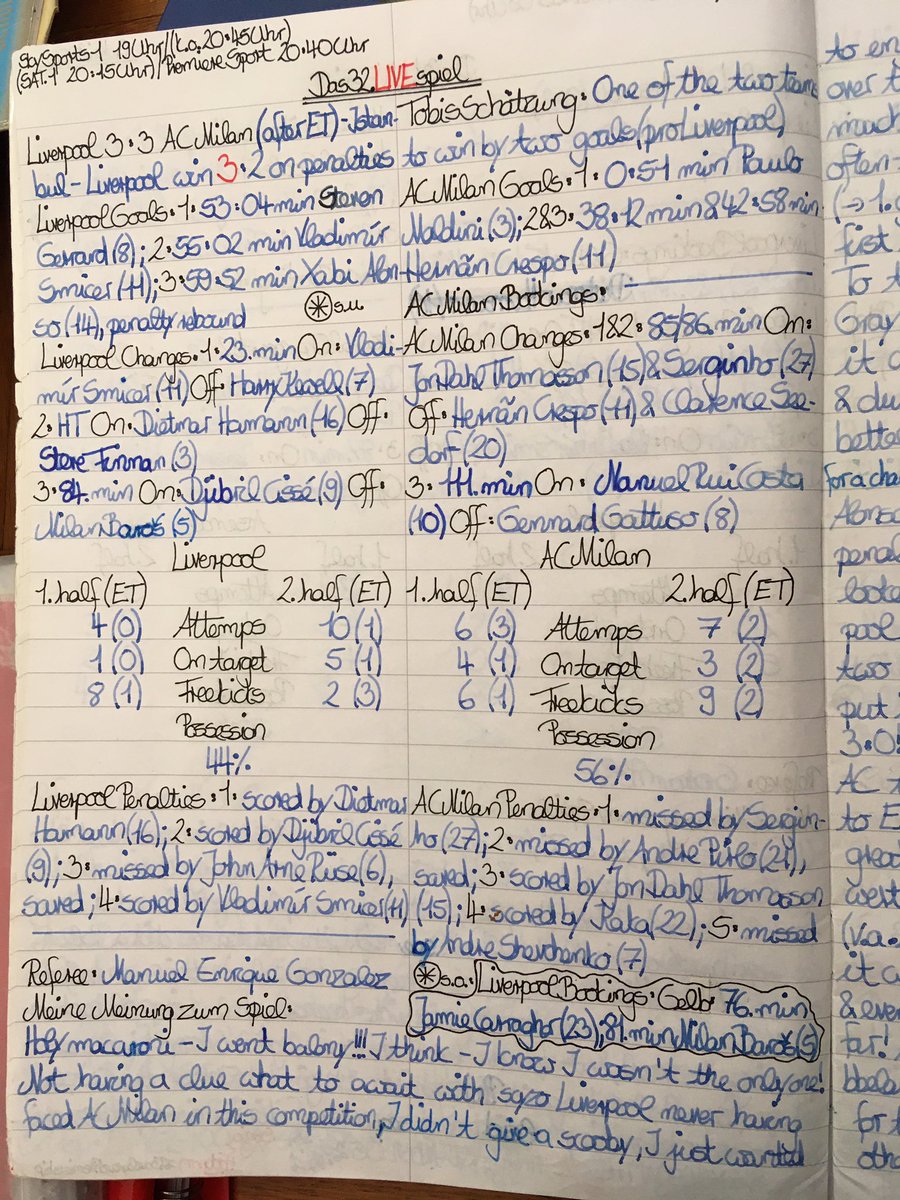 SkySports 1 19Uhr/(k.o. 20:45Uhr)
(SAT.1 20:15Uhr)/Premiere Sport 20:40Uhr
Das 32. LIVEspiel
Liverpool 3:3 AC Milan (after ET)-Istan-
bul - Liverpool win 3:2 on penalties
Liverpool Goals: 1: 53:04 min Steven
Gerrard (8); 2: 55:02 min Vladimír
Smicer (11); 3: 59:52 min Xabi Alon-
so (14), penalty rebound
* s.u.
Liverpool Changes: 1: 23. min On: Vladi-
mír Smicer (11) Off: Harry Kewell (7)
2: HT On: Dietmar Hamann (16) Off:
Steve Finnan (3)
3: 84. min On: Djibril Cissé (9) Off:
Milan Baroš (5)
Tobis Schätzung: One of the two teams
to win by two goals (pro Liverpool)
AC Milan Goals: 1: 0:51 min Paulo
Maldini (3); 2&3: 38:12 min & 42:58 min
Hernãn Crespo (11)
AC Milan Bookings: -
AC Milan Changes: 1&2: 85/86. min On:
Jon Dahl Thomasson (15) & Serginho (27)
Off: Hernãn Crespo (11) & Clarence See-
dorf (20)
3: 111. min On: Manuel Rui Costa
(10) Off: Gennard Gattuso (8)
Liverpool
1. half (ET) 2. half (ET)
4 (0) Attemps 10 (1)
1 (0) On target 5 (1)
8 (1) Freekicks 2 (3)
Possession
44%
AC Milan
1. half (ET) 2. half (ET)
6 (3) Attemps 7 (2)
4 (1) On target 3 (2)
6 (1) Freekicks 9 (2)
Possession
56%
Liverpool Penalties: 1: scored by Dietmar
Hamann (16); 2: scored by Djibril Cissé
(9); 3: missed by John Arne Riise (6),
saved; 4: scored by Vladimír Smicer (11)
AC Milan Penalties: 1: missed by Sergin-
ho (27); 2: missed by Andre Pirlo (21),
saved; 3: scored by Jon Dahl Thomasson
(15); 4: scored by Kaka (22); 5: missed
by Andre Shevchenko (7)
Referee: Manuel Enrique Gonzalez
* s.a.: Liverpool Bookings: Gelb: 76. min
Jamie Carragher (23); 81. min Milan Baroš (5)
Meine Meinung zum Spiel:
Holy macaroni - I went balony!!! I think - I know I wasn't the only one!
Not having a clue what to await with Liverpool never having
faced AC Milan in this competition, I didn't give a scooby, I just wanted
to en
over t
much
often
(→ 1.
first
To t
Gray
it
& du
better
for a cha
Alonso
penal
pool
two
put
3:0
AC
to E
great
went
(v.a.
it
& eve
far!
for
oth